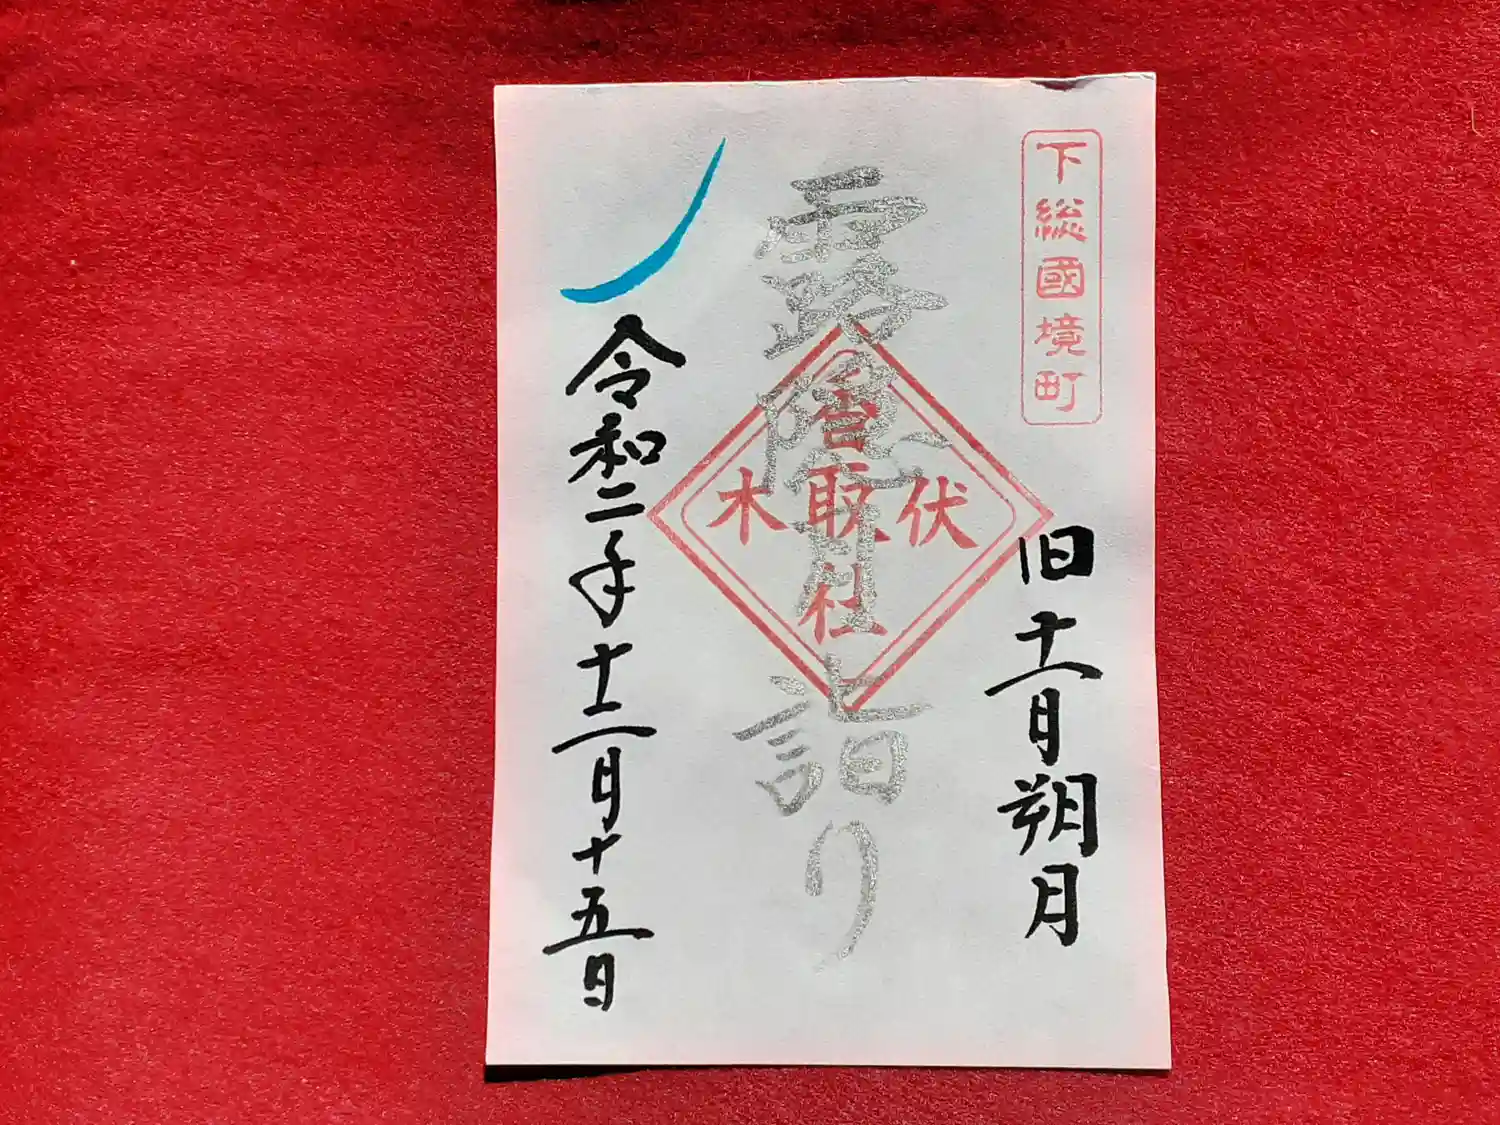 下総國境町
旧十一月朔月
露隠月詣り
伏木
香取社
令和二年十二月十五日